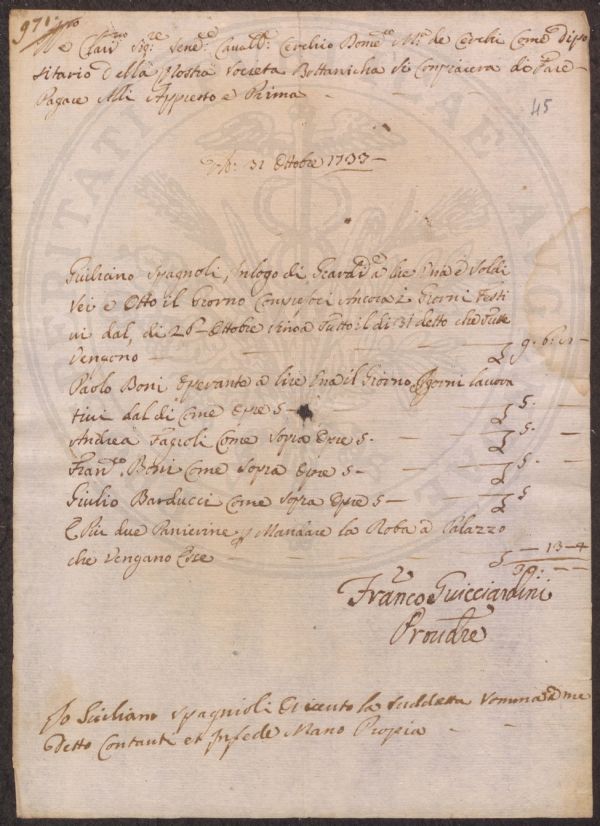 971.
Ill.re Clar.mo Sig.re Sen.re Caval.re Cerchio Dom.co M.a de Cerchi Come dipo
sitario della Nostra Societa Bottanicha Si Conpiacera di Fare
Pagare Alli Appresto e Prima
45
31 Ottobre 1733
Giuliano Spagnoli, in logo di lire Una e Soldi
Sei e Otto il Giorno Conpresoci Ancora 2 Giorni Festi
vi dal, di 26 Ottobre sino a tutto il di 31 detto che Sono
Vengono 9. 6. 8
Paolo Boni Operante a lire Una il Giorno Giorni lavora
tivi dal di Come Opre 5 5.
Andrea Fagioli Come Sopra Opre 5. 5.
Fran.co Boni Come Sopra Opre 5 5.
Giulio Barducci Come Sopra Opre 5 5
E Piu due Panierine p Mandare la Roba a Palazzo
che Vengano Lire 13 4
30:
Franco Guicciardini
Proud.re
Io Giuliano Spagnioli O riceuto la Suddetta Somma a me
Detto Contanti et In fede Mano Propia